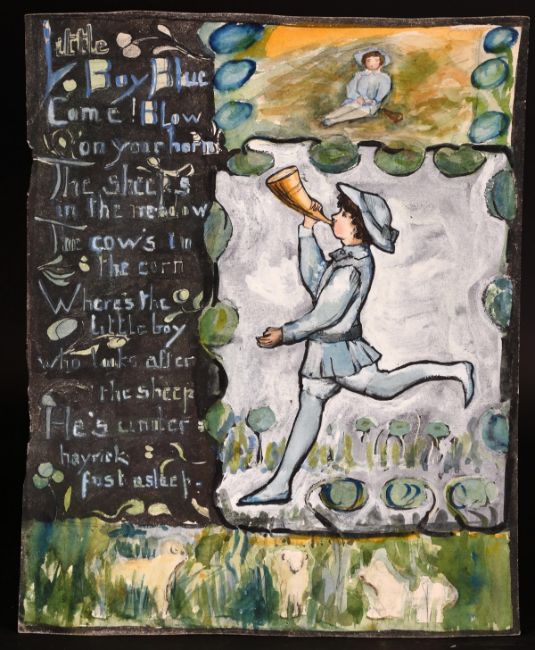 Little
Boy Blue
Come! Blow
on your horn!
The sheep's
in the meadow
The cow's in
the corn
Wheres the
little boy
who looks after
the sheep
He's under a
hayrick
fast asleep.